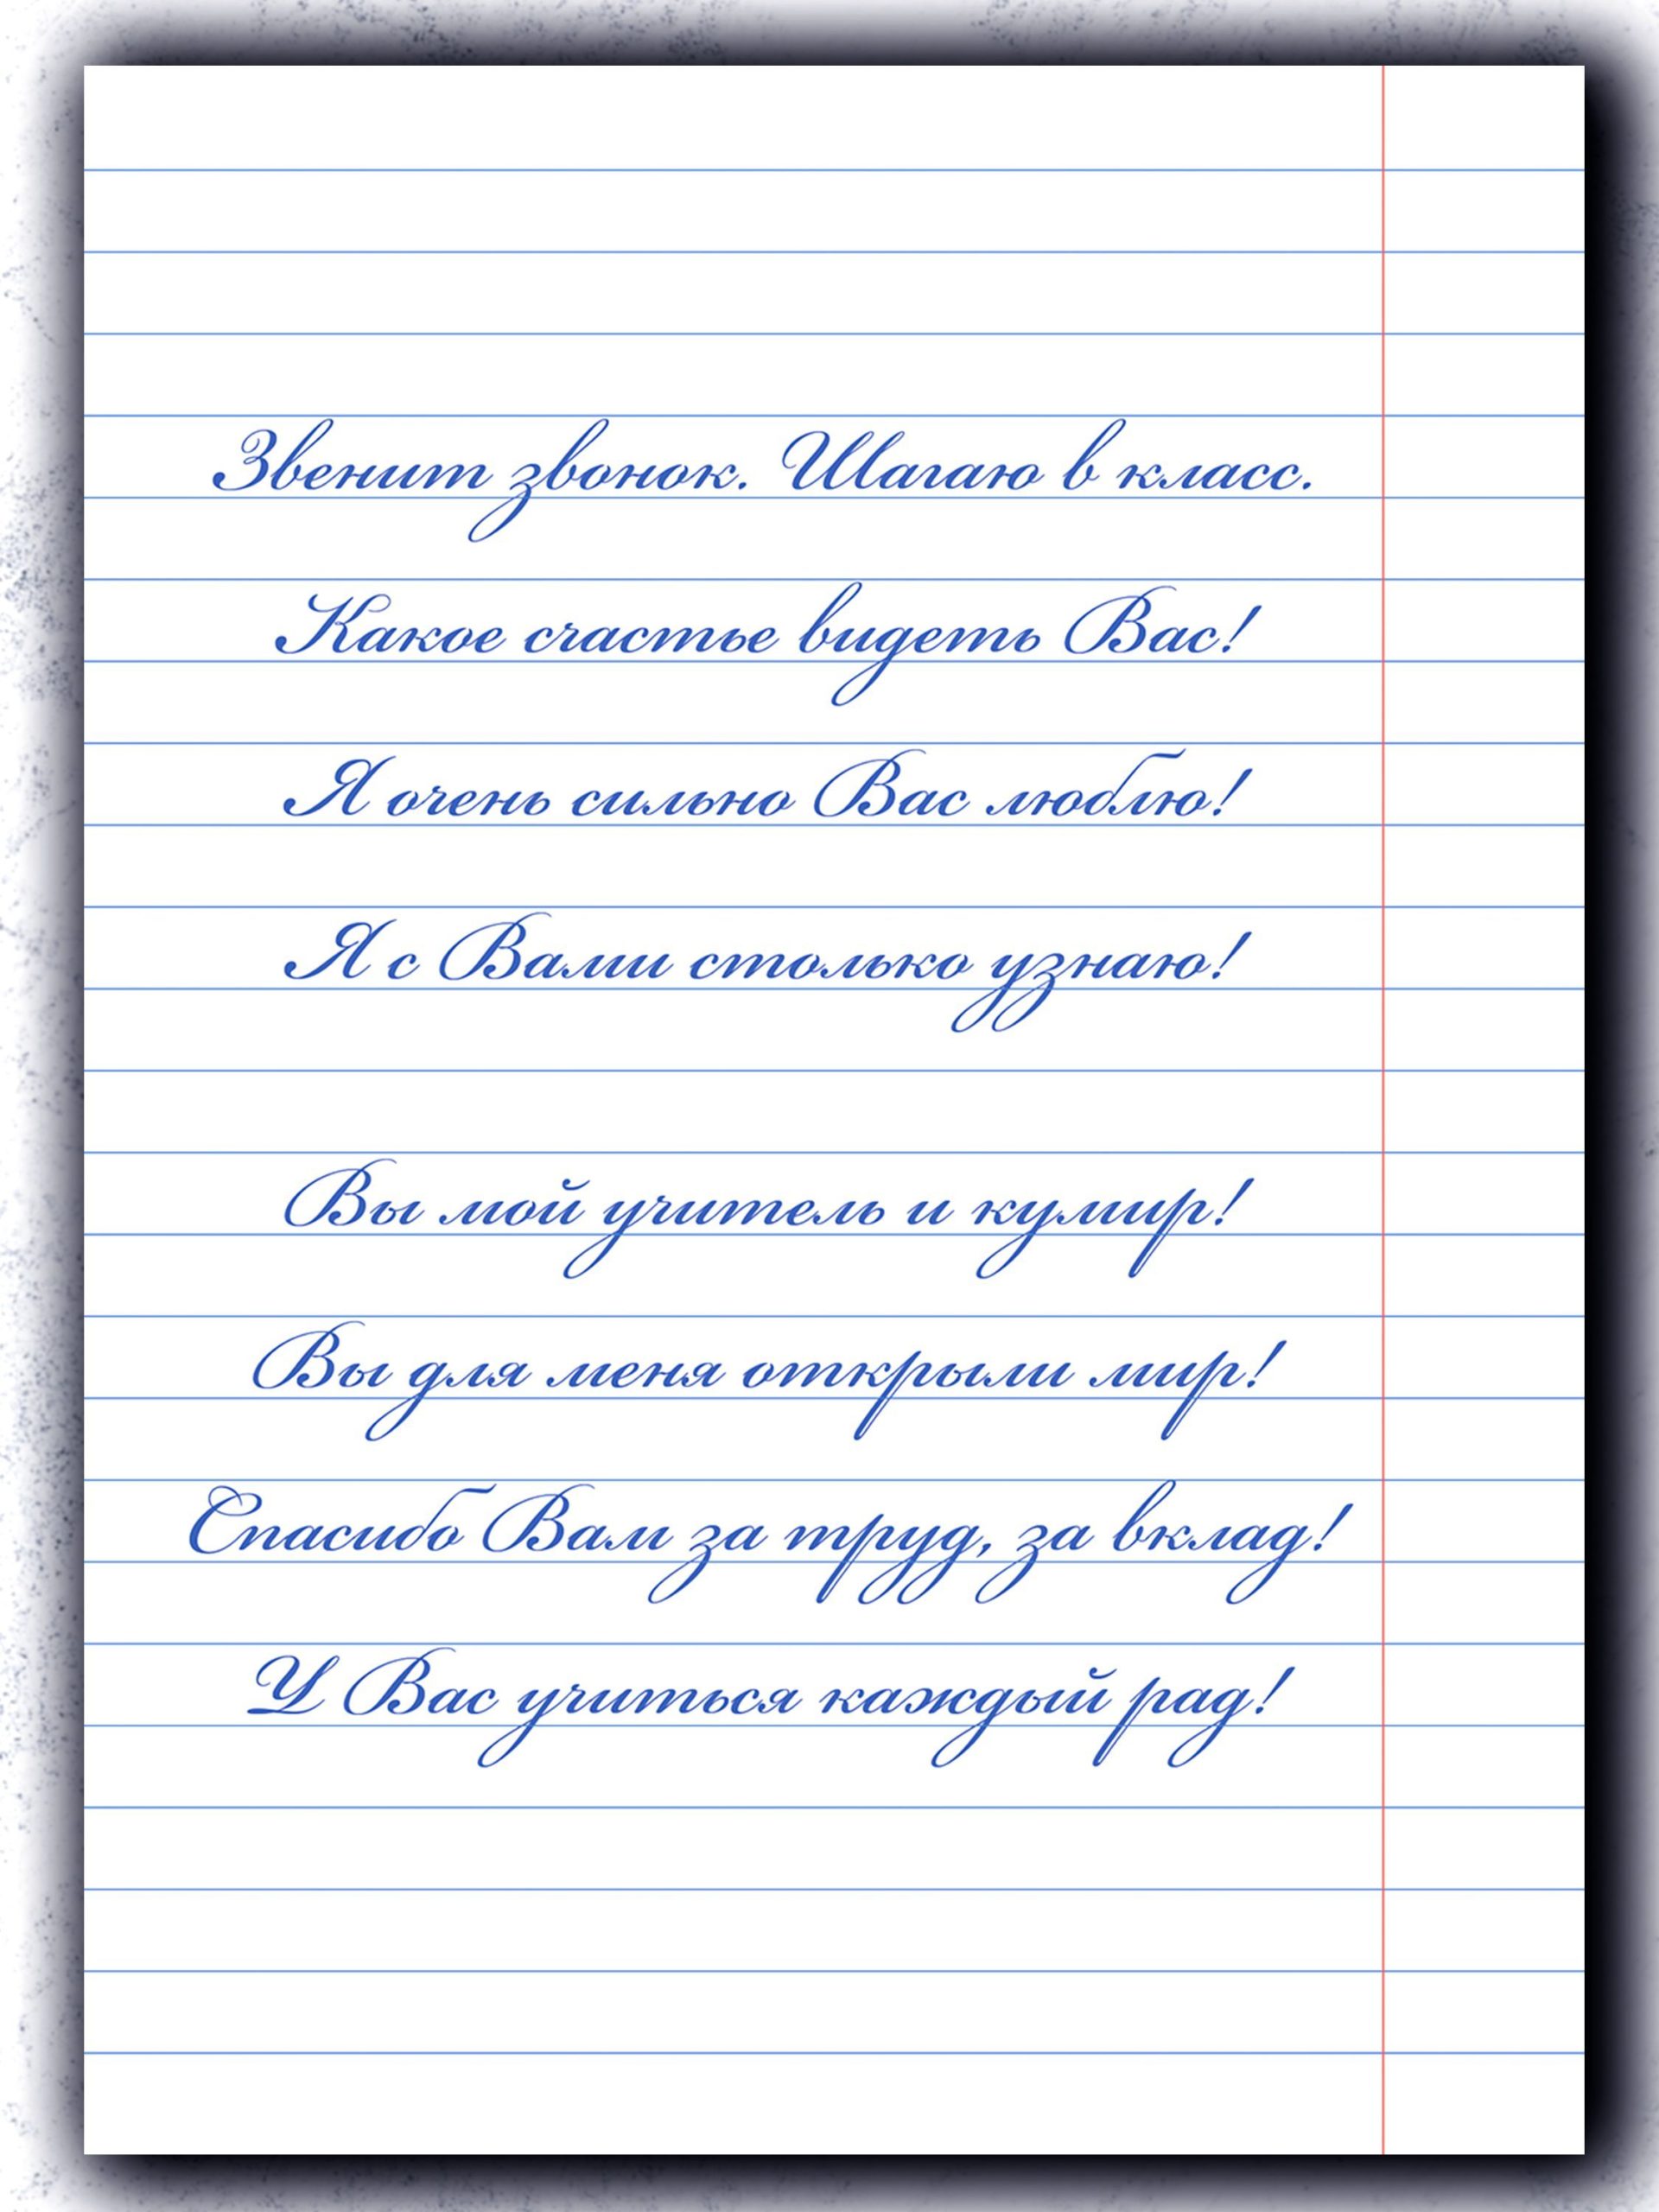 Звенит звонок. Шагаю в класс.
Какое счастье видеть Вас!
Я очень сильно Вас люблю!
Я с Вами столько узнаю!
Вы мой учитель и кумир!
Вы для меня открыли мир!
Спасибо Вам за труд, за вклад!
У Вас учиться каждый рад!